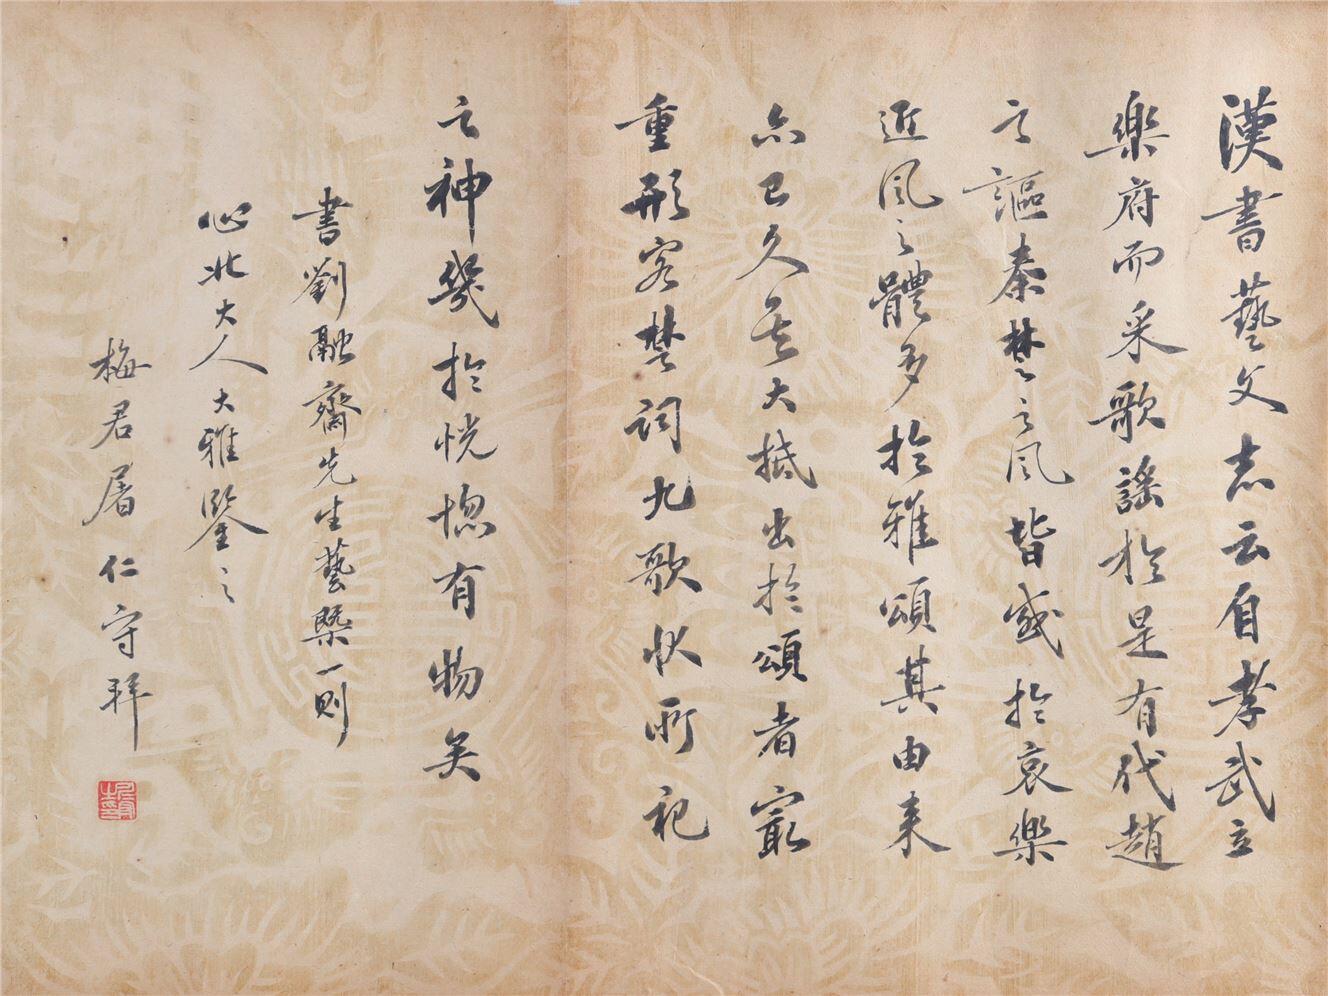 漢書藝文志云自孝武立
樂府而采歌謠於是有代趙
之謳秦楚之風皆感於哀樂
近風之體多於雅頌其由来
亦已久矣大抵出於頌者寂
重形容楚詞九歌狀所祀
之神幾於恍惚有物矣
書劉融齋先生藝槩一則
心北大人大雅鑒之
梅君屠仁守拜